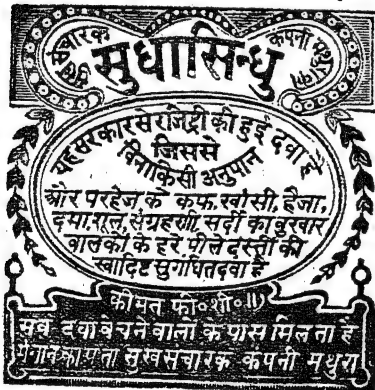 सुखसंचारक कंपनी मथुरा का
सुधासिन्धु
यह सरकार से रजिष्ट्री की हुई दवा है
जिससे
बिना किसी अनुपान
और परहेज के कफ, खाँसी, हैजा,
दमा, शूल, संग्रहणी, सर्दी का बुखार
बालकों के हरे पीले दस्तों की
स्वादिष्ट सुगंधित दवा है
कीमत फी॰ शी॰ ॥)
सब दवा बेचने वालों के पास मिलता है
मंगाने का पता सुखसंचारक कंपनी मथुरा